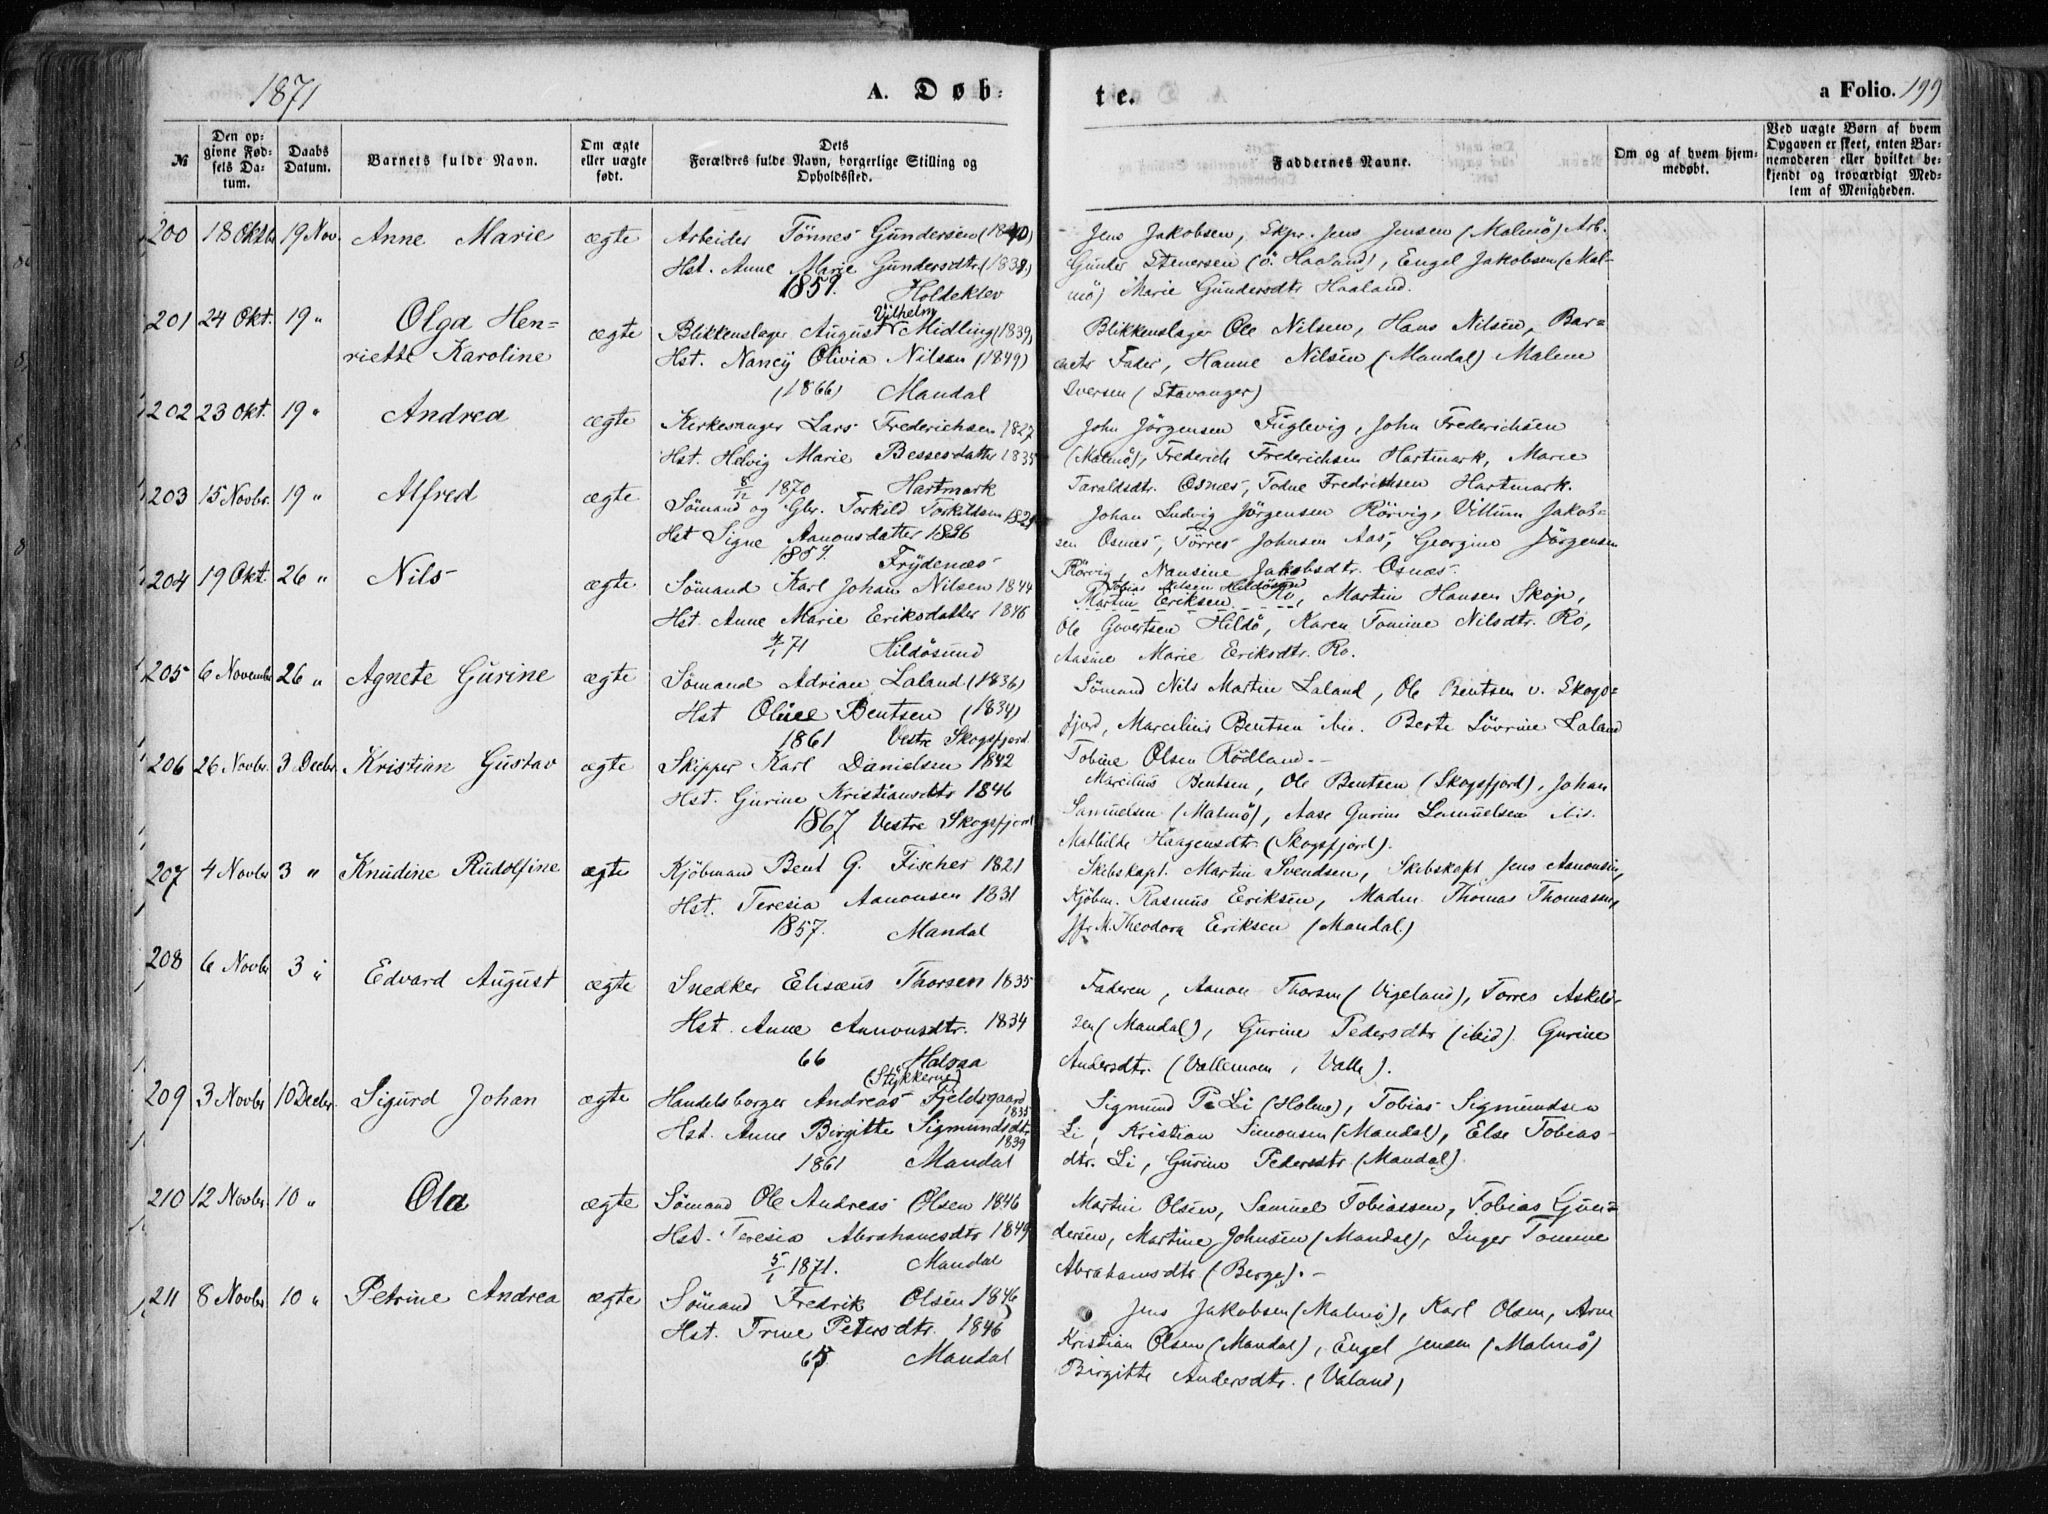 1871
A. Døb-
te.
a Folio. 199
№
Den opgivne Fødsels Datum.
Daabs Datum.
Barnets fulde Navn.
Om ægte eller uægte født.
Dets Forældres fulde Navn, borgerlige Stilling og Opholdssted.
Faddernes Navne.
Om og af hvem hjemmedøbt.
Ved uægte Børn af hvem Opgaven er skeet, enten Barnemoderen eller hvilket bekjendt og troværdigt Medlem af Menigheden.
200 18 Oktbr 19 Nov. Anne Marie ægte Arbeider Tönnes Gundersen (1840)
Hst. Anne Marie Gundersdtr.
1859. Holdeklev
Jens Jakobsen, Skpr. Jens Jensen (Malmö) Arb.
Gunder Stenersen (ö. Haaland), Engel Jakobsen (Mal-
mö) Marie Gundersdtr Haaland.
201 24 Okt. 19 " Olga Hen-
riette Karoline ægte Blikkenslager August Vilhelm Midling (1839)
Hst. Nancÿ Olivia Nilsen (1849)
(1866) Mandal
Blikkenslager Ole Nilsen, Hans Nilsen, Bar-
nets Fader, Hanne Nilsen (Mandal) Malene
Iversen (Stavanger)
202 23 Okt. 19 " Andrea ægte Kirkesanger Lars Frederichsen 1827
Hst. Helvig Marie Bessesdatter 1835
8/12 1870 Hartmark
John Jörgensen Fuglevig, John Frederichsen
(Malmö), Frederich Frederichsen Hartmark, Marie
Taraldsdtr. Osnæs, Todne Fredrichsen Hartmark.
203 15 Novbr. 19 " Alfred ægte Sömand og Gbr. Torkild Torkildsen
Hst Signe Aanonsdatter 1836
1857. Frÿdenæs
Johan Ludvig Jörgensen Rörvig, Villum Jakob-
sen Osnæs, Törres Johnsen Aas, Georgine Jörgensen
Rörvig, Nansine Jakobsdtr. Osnæs.
204 19 Okt. 26 " Nils ægte Sömand Karl Johan Nilsen 1844
Hst. Anne Marie Eriksdatter 1846
71 Hildösund
Tobias Nilsen Hildösund
Martin Eriksen Ro, Martin Hansen Skoje,
Ole Govertsen Hildö, Karen Tomine Nilsdtr. Ro,
Aasine Marie Eriksdtr. Ro.
205 6 November 26 " Agnete Gurine ægte Sömand Adrian Laland (1836)
Hst Oline Bentsen (1834)
1861 Vestre Skogsfjord
Sömand Nils Martin Laland, Ole Bentsen v. Skogs-
fjord, Marcilius Bentsen ibi. Berte Severine Laland
Tobine Olsen Rödland.-
206 26 Novbr. 3 Decbr. Kristian Gustav ægte Skipper Karl Danielsen 1842
Hst. Gurine Kristiansdtr 1846
1867 Vestre Skogsfjord
Marcilius Bentsen, Ole Bentsen (Skogsfjord), Johan
Samuelsen (Malmö), Aase Gurine Samuelsen ibi.
Mathilde Haagensdtr. (Skogsfjord).
207 4 Novbr 3 " Knudine Rudolfine ægte Kjöbmand Bent G. Fischer 1821
Hst. Teresia Aanonsen 1831
1857. Mandal
Skibskapt. Martin Svendsen, Skibskapt Jens Aanonsen,
Kjöbm. Rasmus Eriksen, Madm. Thomas Thomassen,
Jfr M. Theodora Eriksen (Mandal.)
208 6 Novbr 3 " Edvard August ægte Snedker Elisæus Thorsen 1835
Hst. Anne Aanonsdtr. 1834
66 Halsaa
Faderen, Aanon Thorsen (Vigeland), Torres Askild-
sen (Mandal), Gurine Pedersdtr (ibid). Gurine
Andersdtr. (Vallemoen, Valle).
209 3 Novbr 10 Decbr. Sigurd Johan ægte (Stÿkkerne)
Handelsborger Andreas Fjeldsgaard 1835
Hst. Anne Birgitte Sigmundsdtr 1839
1861 Mandal
Sigmund P. Li (Holme), Tobias Sigmundsen
Li, Kristian Simonsen (Mandal), Else Tobias-
dtr. Li, Gurine Pedersdtr (Mandal).
210 12 Novbr. 10 " Ola ægte Sömand Ole Andreas Olsen 1846
Hst. Teresia Abrahamsdtr 1849
5/1 1871. Mandal
Martin Olsen, Samuel Tobiassen, Tobias Gun-
dersen, Martine Johnsen (Mandal), Inger Tomine
Abrahamsdtr (Berge).-
211 8 Novbr 10 " Petrine Andrea ægte Sömand Fredrik Olsen 1846
Hst. Trine Petersdtr. 1846
Mandal
Jens Jakobsen (Malmö), Karl Olsen, Arne
Kristian Olsen (Mandal), Engel Jensen (Malmö)
Birgitte Andersdtr. (Valand)